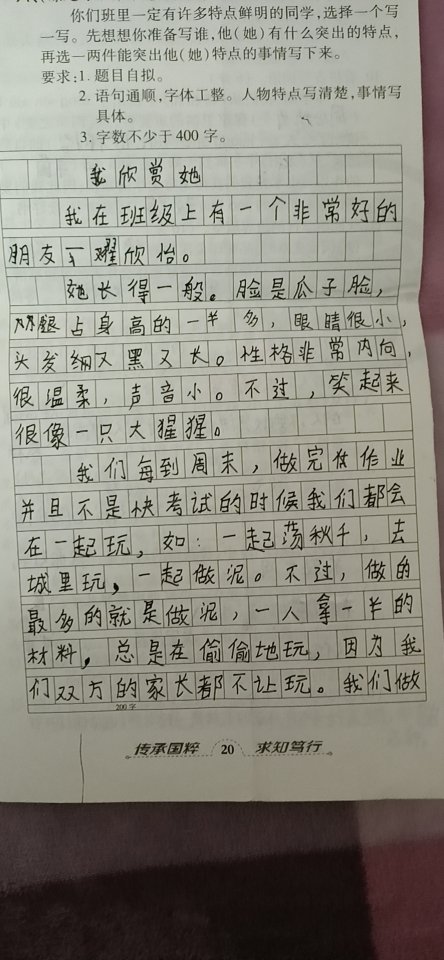 你们班里一定有许多特点鲜明的同学，选择一个写
一写。先想想你准备写谁，他（她）有什么突出的特点，
再选一两件能突出他（她）特点的事情写下来。
要求：1. 题目自拟。
2. 语句通顺，字体工整。人物特点写清楚，事情写
具体。
3. 字数不少于 400 字。
我欣赏她
我在班级上有一个非常好的
朋友 欣怡。
她长得一般。脸是瓜子脸，
占身高的一半多，眼睛很小，
头发细又黑又长。性格非常内向，
很温柔，声音小。不过，笑起来
很像一只大猩猩。
我们每到周末，做完作业
并且不是快考试的时候我们都会
在一起玩，如：一起荡秋千，去
城里玩，一起做泥。不过，做的
最多的就是做泥，一人拿一半的
材料，总是在偷偷地玩，因为我
们双方的家长都不让玩。我们做
200字
传承国粹 20 求知笃行